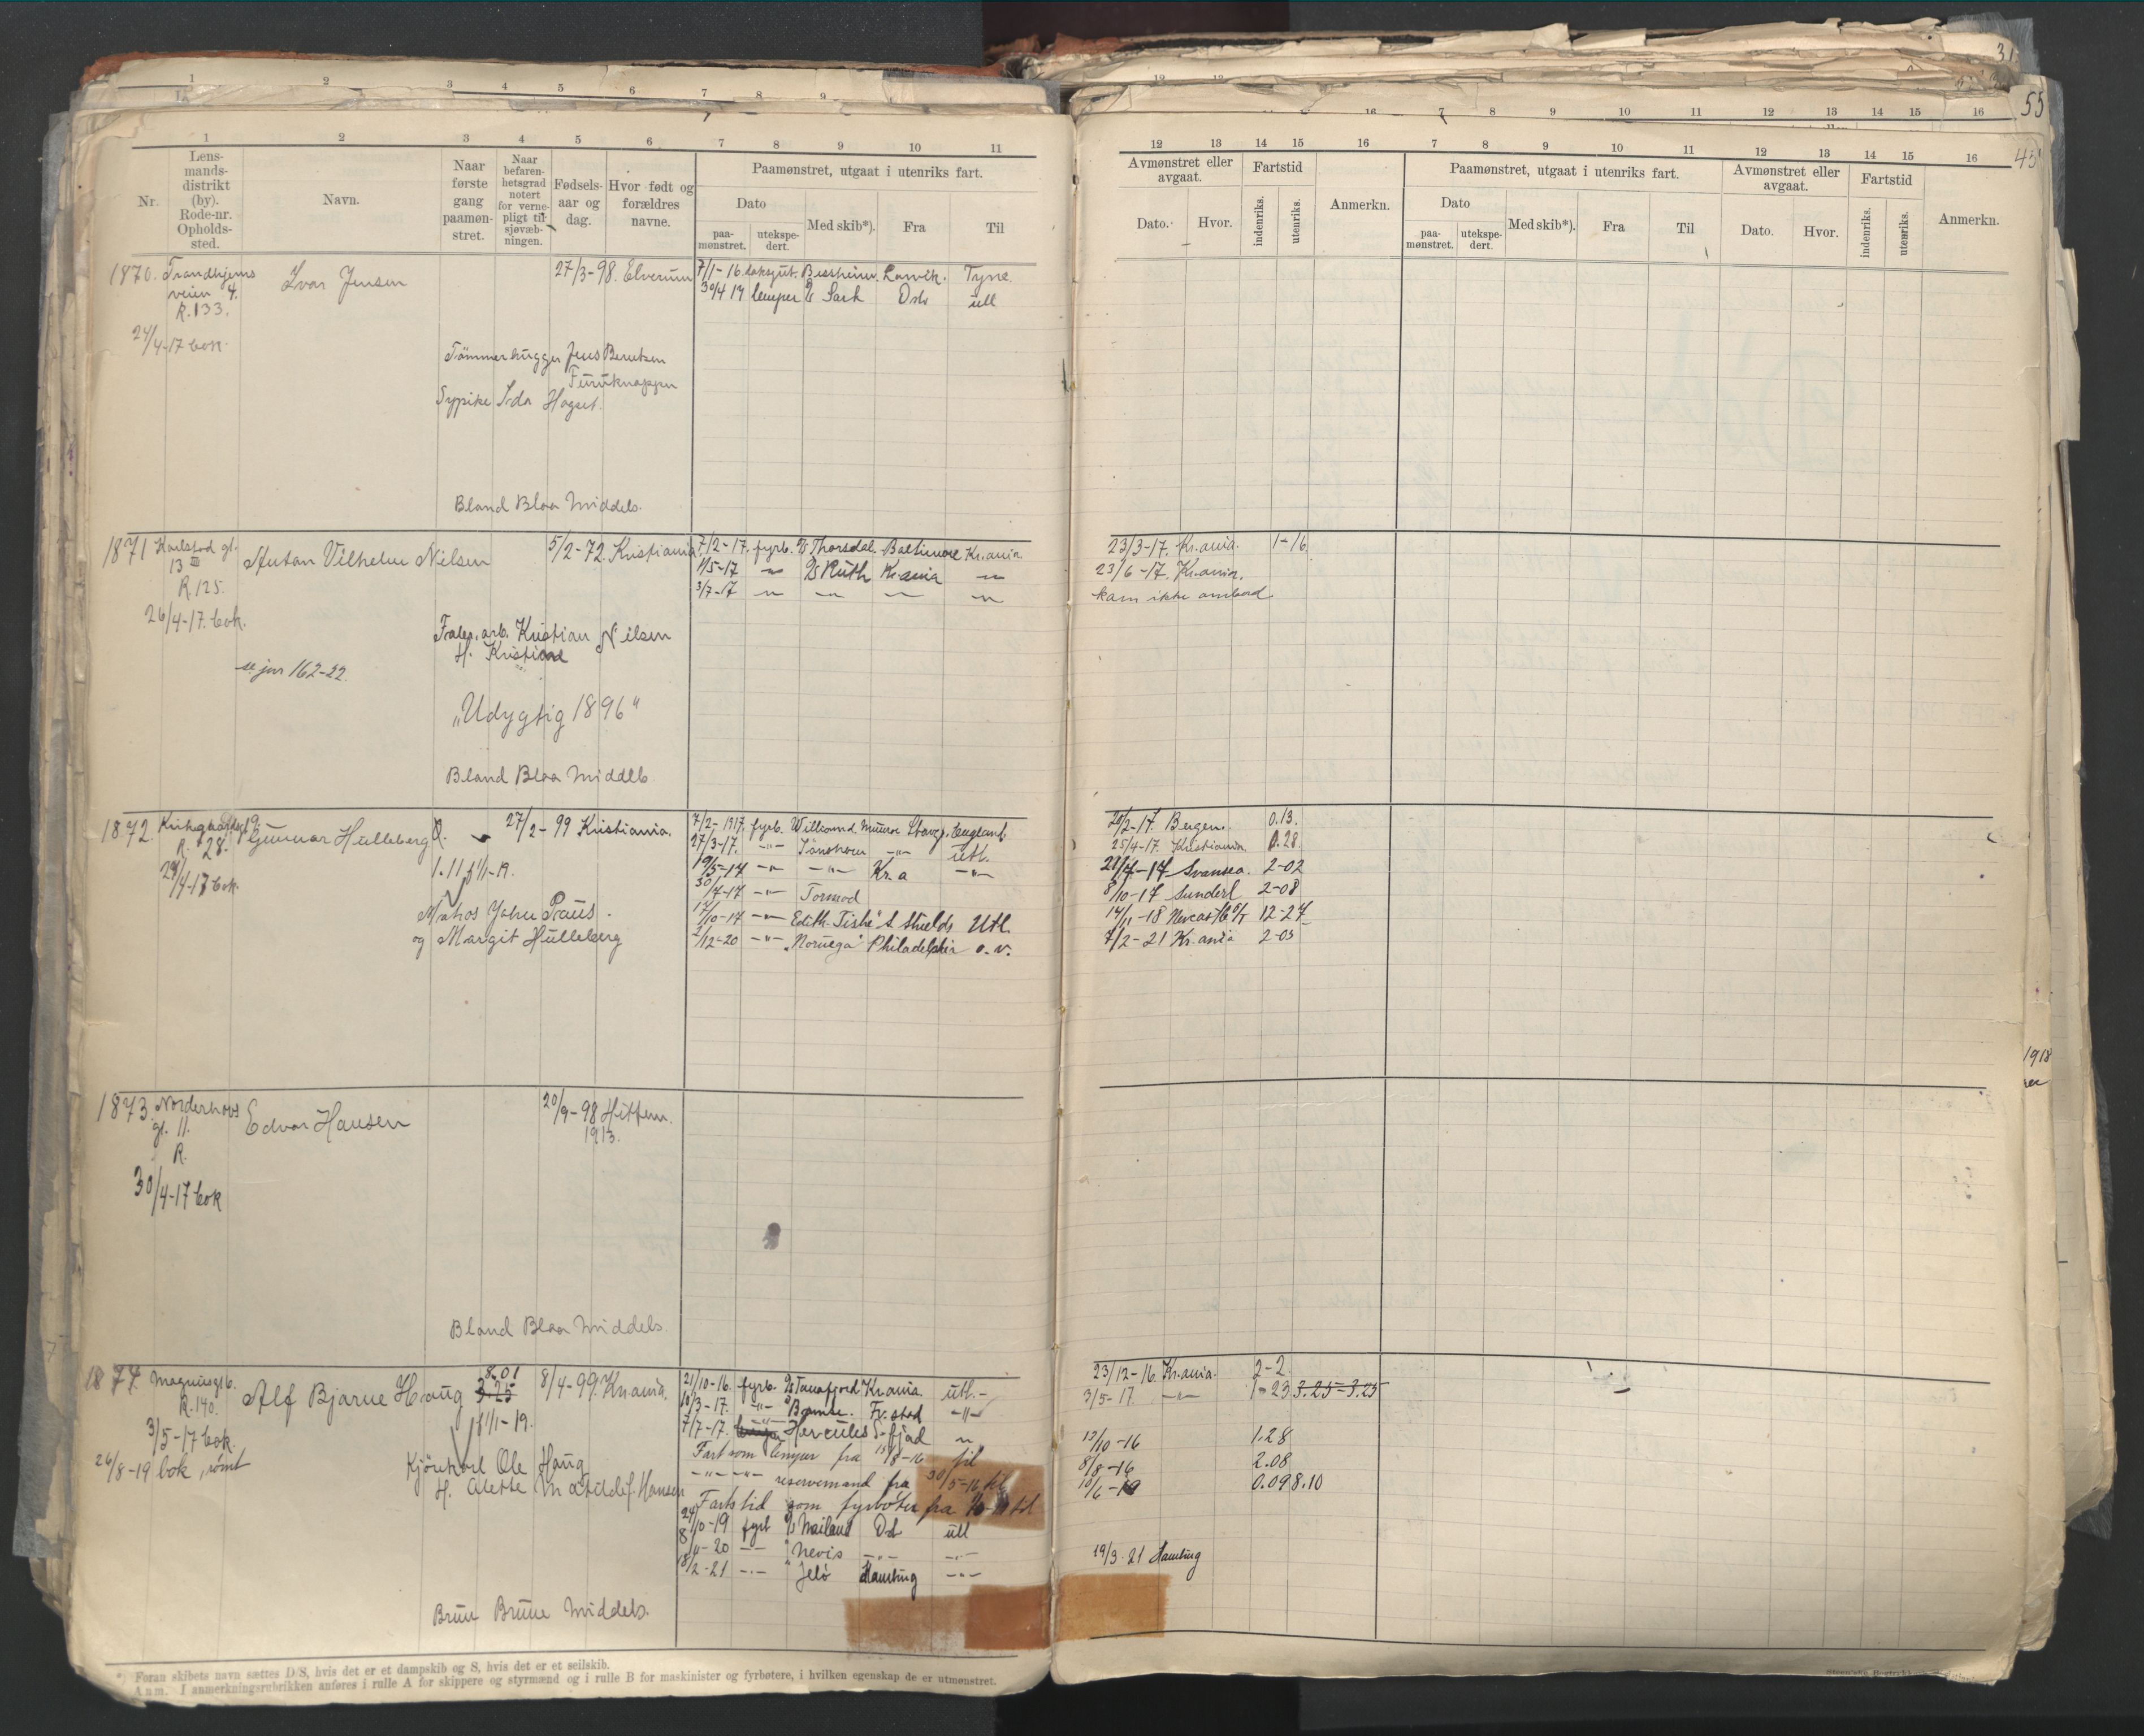 1 2 3 4 5 6 7 8 9 10 11
Nr.
Lens-
mands-
distrikt
(by).
Rode-nr.
Opholds-
sted.
Navn.
Naar
første
gang
paamøn-
stret.
Naar
befaren-
hetsgrad
notert
for verne-
pligt til
sjøvæb-
ningen.
Fødsels-
aar og
dag.
Hvor født og
forældres
navne.
Paamønstret, utgaat i utenriks fart.
Dato
paa-
mønstret.
utekspe-
dert.
Med skib*).
Fra
Til
1870. Trondhjems
veien 4.
R. 133.
24/4-17 bok.
Ivar Jensen
27/3-98. Elverum
7/1-16 Larvik. Tyne.
30/4 17 lemper D/S Sark Oslo utl
Tömmerhugger Jens Berntsen
Furuknappen
Sypike Ida Hagset.
Bland Blaa Middels.
1871 Karlstad gt.
13 III
R. 125.
26/4-17. bok.
Anton Vilhelm Nilsen
se jnr 162-22.
5/2-72. Kristiania
7/2-17. fyrb. D/S Thorsdal. Baltimore Kr.ania
1/5-17 -"- D/S Ruth Kr.ania -"-
3/7-17 -"- -"- -"- -"-
Kristian Nilsen
H. Kristine
"Udygtig 1896"
Bland Blaa Middels
1872.
R. 28.
24/4-17 bok.
Gunnar Hulleberg Q.
27/2-99 Kristiania.
1.11 1/1-19.
Matros John Paus.
og Margit Hulleberg
7/2-1917. fyrb. Stavgr. England.
27/3-17. -"- -"- utl.
19/5-17 -"- -"- Kr.a -"-
30/7-17 -"- Tormod
17/10-17 -"- "Edith. S. Shields Utl.
2/12-20 -"- "Noruega" Philadelphia o.v.
1873. Norderhovs
gt. 11.
R.
30/4-17 bok
Edvar Hansen
20/9-98 Hitterø.
1913.
Bland Blaa Middels.
1874. Magnusgt 6.
R. 140.
3/5-17 bok.
26/8-19 bok, rømt
Alf Bjarne Haug
8.01
3.25
8/4-99. Kr.ania.
1/1-19.
Ole Haug
H. Alette Matilde f. Hansen
21/10-16. fyrb. D/S Tanafjord Kr.ania. utl. -
10/3-17. -"- Fr.stad -"-
7/7-17. Hercules S-fjord "
Fart som lemper fra 15/8-16 til
-"- -"- reservemand fra 30/5-16 til
Fartstid som fyrbøter fra til
24/10-19 fyrb D/S Mailand Od utl
8/4-20 -"- " Nevis -"- -"-
18/2-21 -"- " Jelø Hamburg -"-
Brun Brune Middels.
*) Foran skibets navn sættes D/S, hvis det er et dampskib og S, hvis det er et seilskib.
Anm. I anmerkningsrubrikken anføres i rulle A for skippere og styrmænd og i rulle B for maskinister og fyrbøtere, i hvilken egenskap de er utmønstret.
55
45
12 13 14 15 16 7 8 9 10 11 12 13 14 15 16
Avmønstret eller
avgaat.
Dato.
Hvor.
Fartstid
indenriks.
utenriks.
Anmerkn.
Paamønstret, utgaat i utenriks fart.
Dato
paa-
mønstret.
utekspe-
dert.
Med skib*).
Fra
Til
Avmønstret eller
avgaat.
Dato.
Hvor.
Fartstid
indenriks.
utenriks.
Anmerkn.
23/3-17. Kr.ania. 1-16
23/6-17. Kr.ania.
kom ikke ombord
20/2-17. Bergen. 0.13.
25/4-17. Kristiania. 0.28.
21/7-17 Svansea. 2-02
8/10-17 Sunderl 2-08
14/1-18 12-27
7/2-21 Kr.ania 2-05
23/12-16. Kr.ania. 2-2.
3/5-17. -"- 1-23 3.25-3.25
13/10-16 1.28
8/8-16 2.08
10/6-19 0.09 8.10
19/3.21 Hamburg
1918